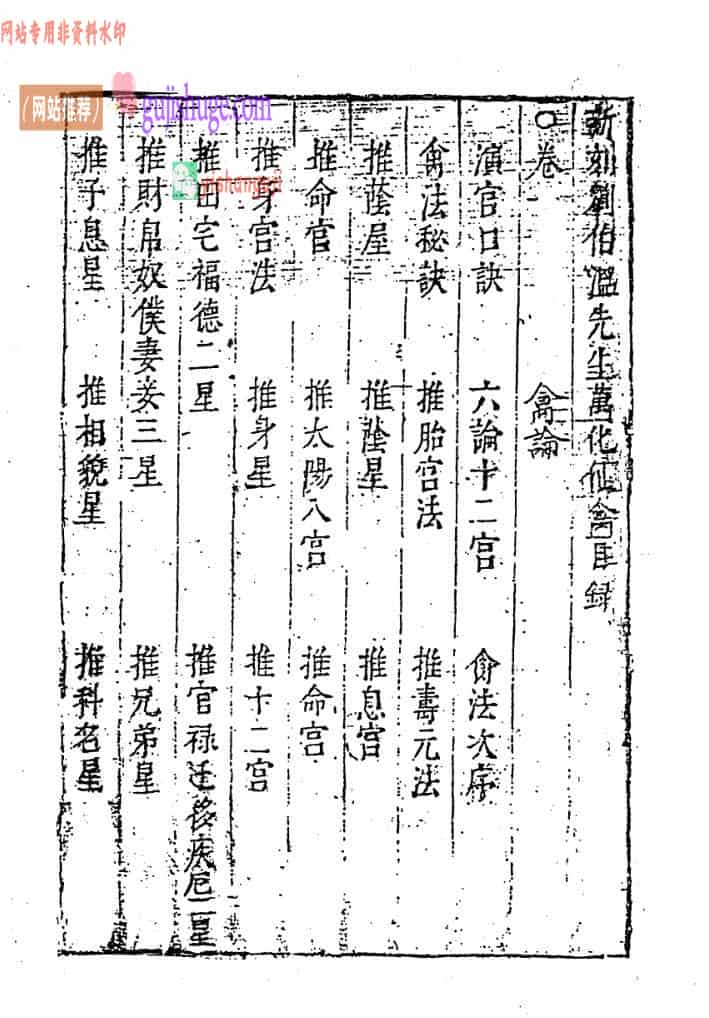 网站专用非资料水印
（网站推荐）
gujishuge.com
yishanggu
新刻劉伯溫先生萬化仙禽目録
○卷一　禽論
演官口訣　六論十二宫　禽法次序
禽法秘訣　推胎宫法　推壽元法
推蔭屋　推蔭星　推息宫
推命官　推太陽八宫　推命宫
推身宫法　推身星　推十二宫
推田宅福德二星　推官禄迁移疾厄二星
推財帛奴僕妻妾三星　推兄弟星
推子息星　推相貌星　推科名星